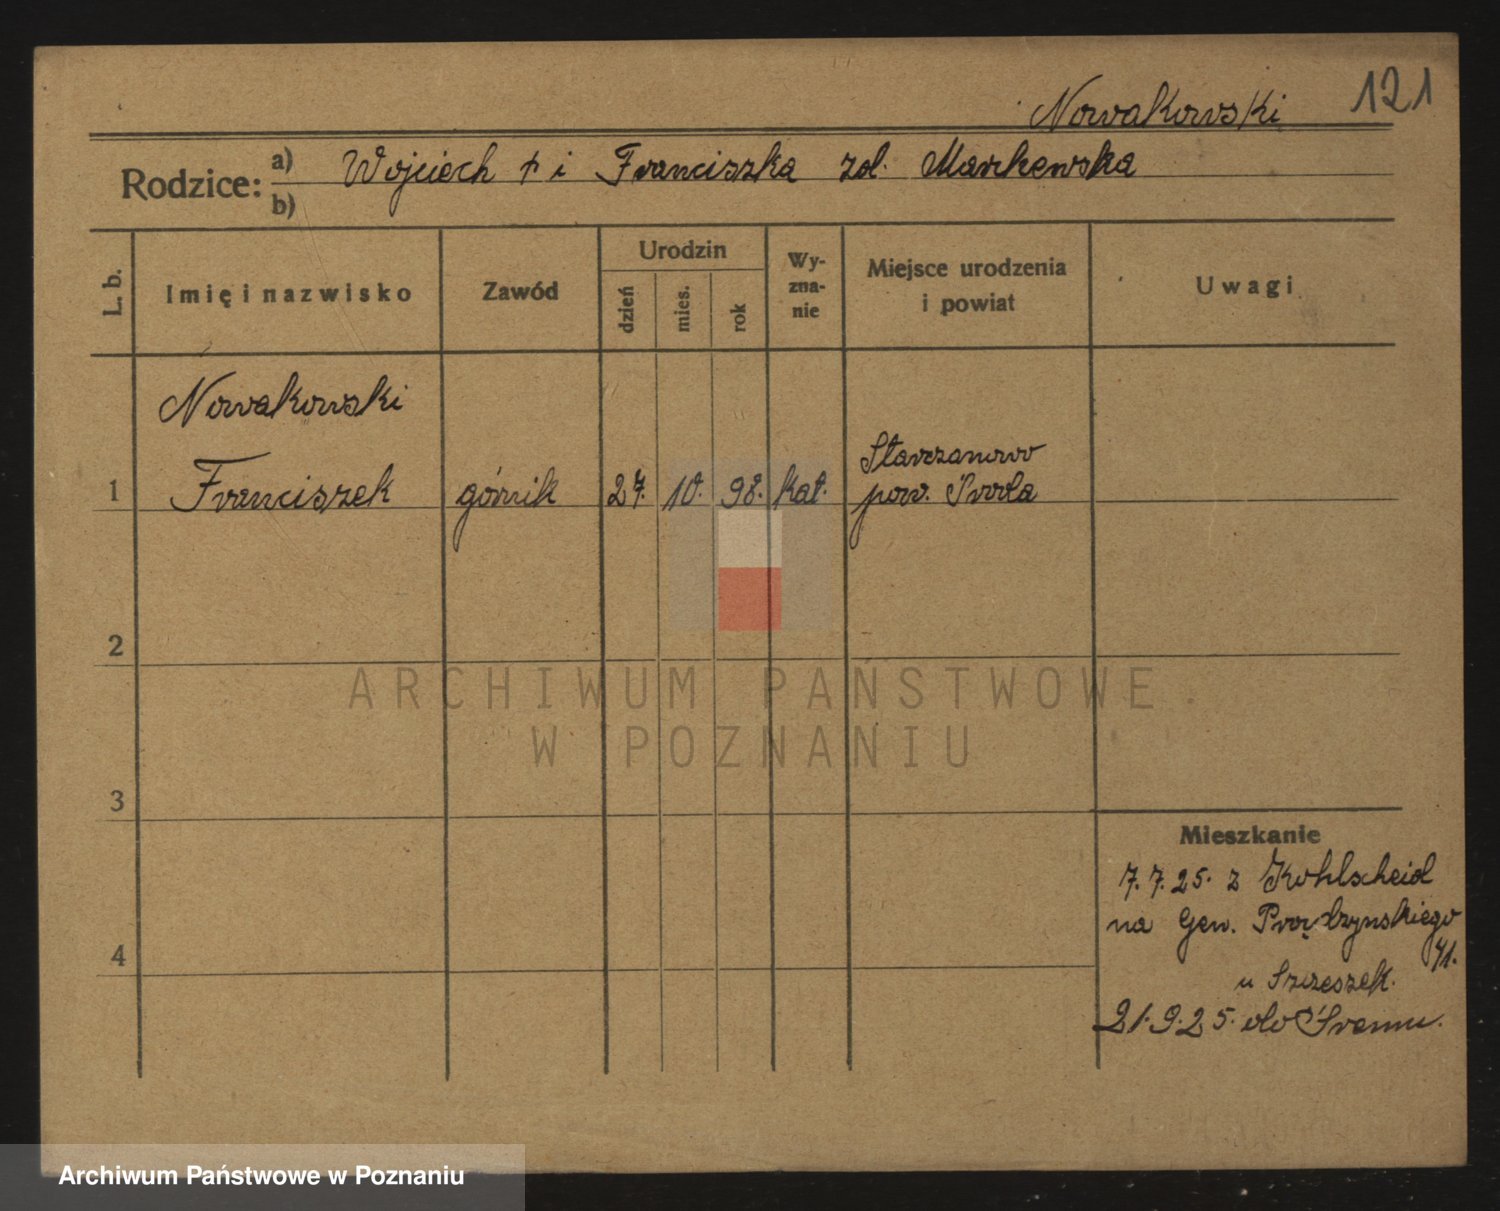 Nowakowski 121
Rodzice: a) Wojciech † i Franciszka zd. Markewska
b)
L. b. Imię i nazwisko Zawód Urodzin dzień mies. rok Wy-zna-nie Miejsce urodzenia i powiat Uwagi
Nowakowski
Starczanowo
1 Franciszek górnik 27. 10. 98. kat. pow. Środa
2
ARCHIWUM PAŃSTWOWE
W POZNANIU
3
Mieszkanie
7.7.25. z Kohlscheid
na Gen. Prądzynskiego
4 41.
u Szczeszek.
21.9.25. do Śremu.
Archiwum Państwowe w Poznaniu